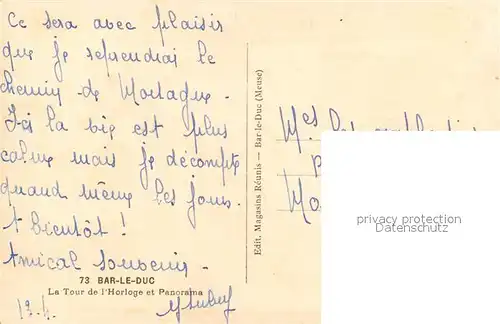 Ce sera avec plaisir
que je reprendrai le
chemin de Mortagne.
Ici la vie est plus
calme mais je décompte
quand même les jours.
A bientôt !
Amical souvenir.
73 BAR-LE-DUC
La Tour de l'Horloge et Panorama
Edit. Magasins Réunis — Bar-le-Duc (Meuse)
Mes
privacy protection
Datenschutz